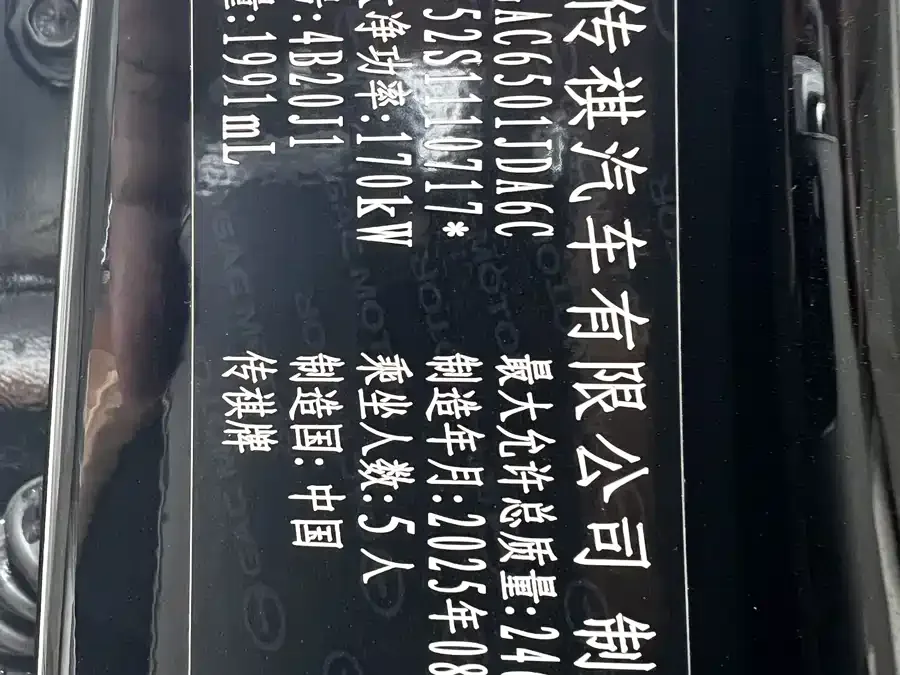 传祺汽车有限公司 制
AC6501JDA6C 最大允许总质量:24
52S1110717* 制造年月:2025年08
净功率:170kW 乘坐人数:5人
:4B20J1 制造国:中国
量:1991mL 传祺牌
GAC MOTOR